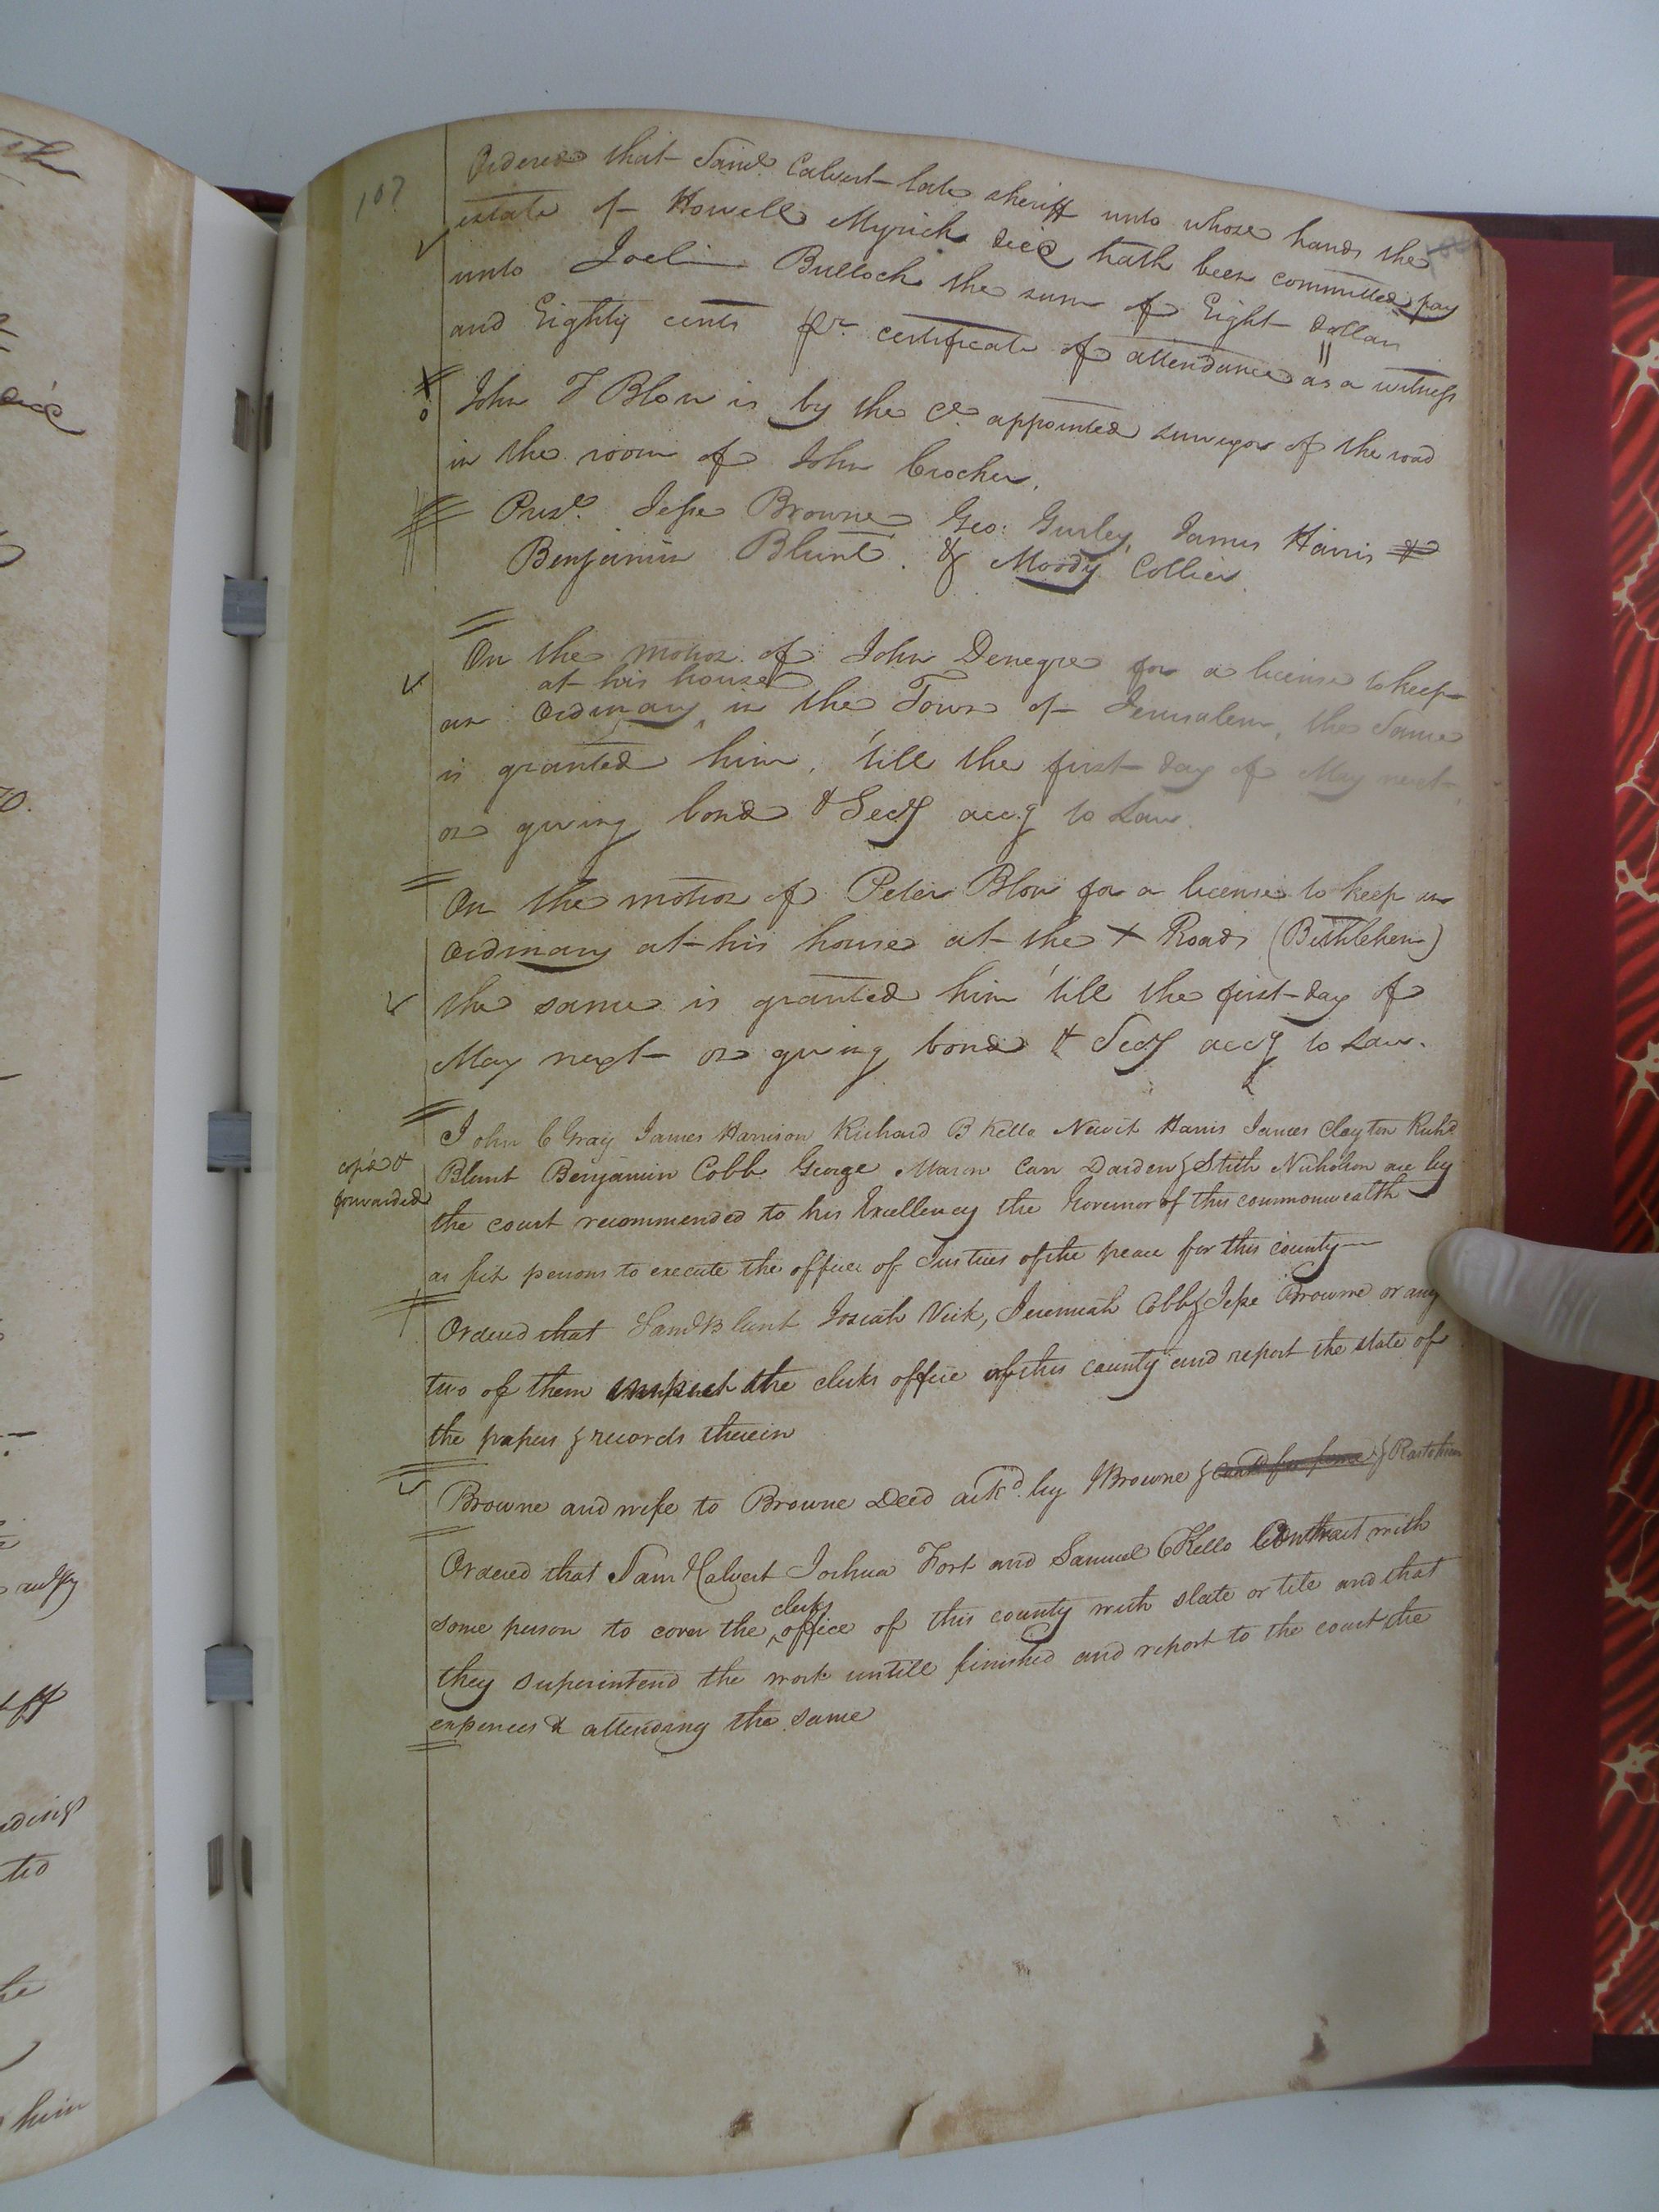 107
Ordered that Saml. Calvert late sheriff unto whose hands the
estate of Howell Myrick decd hath been committed pay
unto Joel Bulloch the sum of Eight dollars
and Eighty cents pr. certificate of attendance as a witness
John T Blow is by the Ct. appointed surveyor of the road
in the room of John Crocker.
Prest. Jesse Browne Geo: Gurley, James Harris &
Benjamin Blunt. & Moody Collier.
On the motion of John Denegre for a license to keep
at his house
an Ordinary ^ in the Town of Jerusalem, the same
is granted him, 'till the first day of May next
on giving bond & Secy accg to Law.
On the motion of Peter Blow for a license to keep an
Ordinary at his house at the X Roads (Bethlehem)
the same is granted him 'till the first day of
May next on giving bond & Secy accg to Law.
John C Gray James Harrison Richard B Kello Newit Harris James Clayton Richd
copied &
forwarded
Blunt Benjamin Cobb George Mason Carr Darden & Stith Nicholson are by
the court recommended to his Excellency the Governor of this commonwealth
as fit persons to execute the office of Justices of the peace for this county
Ordered that Saml Blunt Josiah Vick, Jeremiah Cobb & Jesse Browne or any
two of them inspect the clerks office of this county and report the state of
the papers & records therein
Browne and wife to Browne Deed ackd. by J Browne &
Ordered that Sam Calvert Joshua Fort and Samuel C Kello Contract with
clerks
some person to cover the ^ office of this county with slate or tile and that
they superintend the work untill finished and report to the court the
expences & attending the same